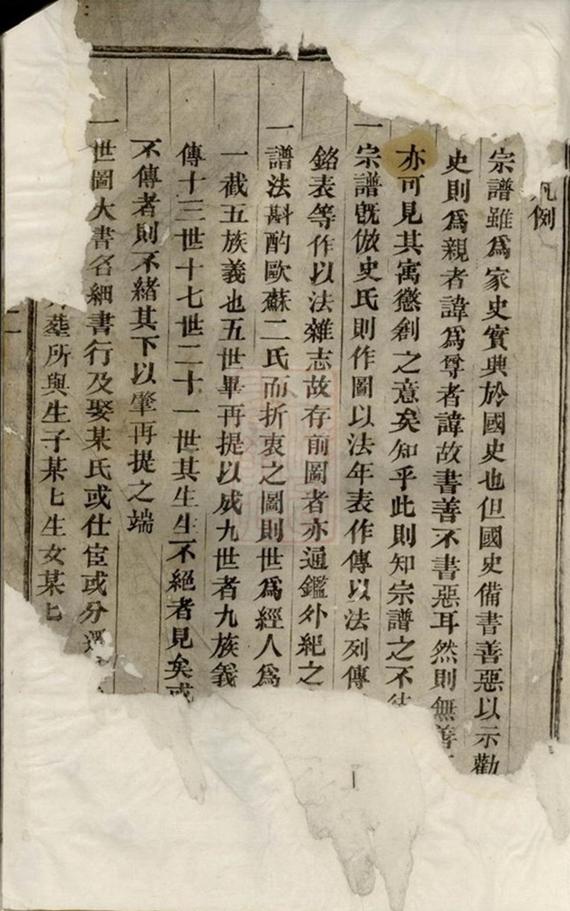 凡例
宗譜雖爲家史實典於國史也但國史備書善惡以示勸
史則爲親者諱爲尊者諱故書善不書惡耳然則無善
亦可見其寓懲創之意矣知乎此則知宗譜之不
一宗譜旣倣史氏則作圖以法年表作傳以法列傳
銘表等作以法雜志故存前圖者亦通鑑外紀之
一譜法斟酌歐蘇二氏而折衷之圖則世爲經人爲
一截五族義也五世畢再提以成九世者九族義
傳十三世十七世二十一世其生生不絕者見矣或
不傳者則不緒其下以肇再提之端
一世圖大書名細書行及娶某氏或仕宦或分遷
墓所與生子某七生女某七